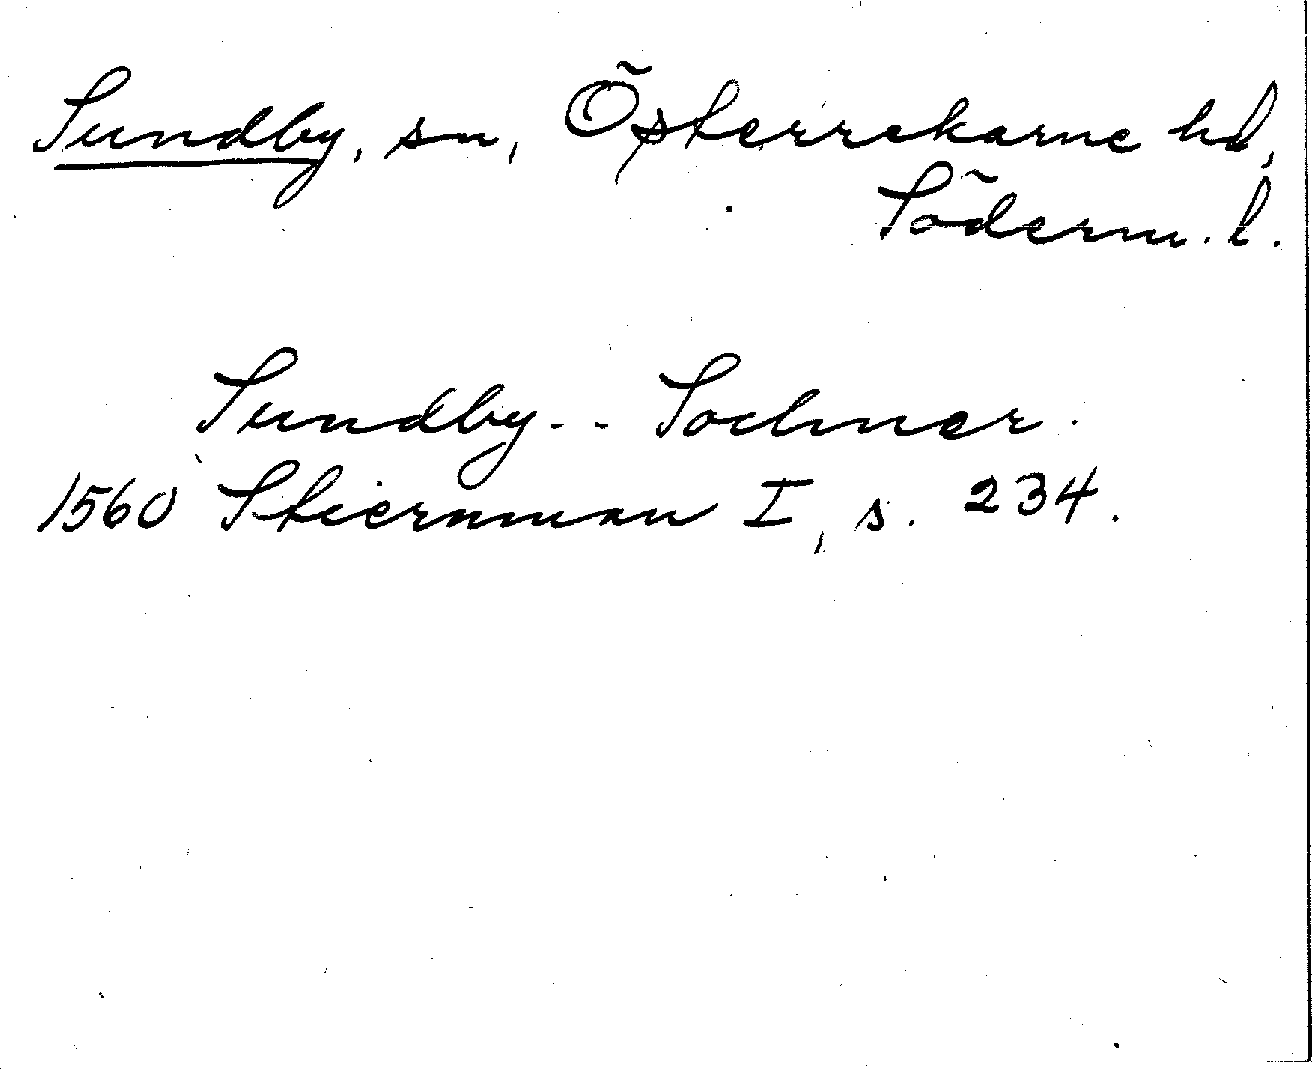 Sundby, sn, Österrekarne hd,
Söderm. l.
Sundby - - Sochner.
1560 Stiernman I, s. 234.